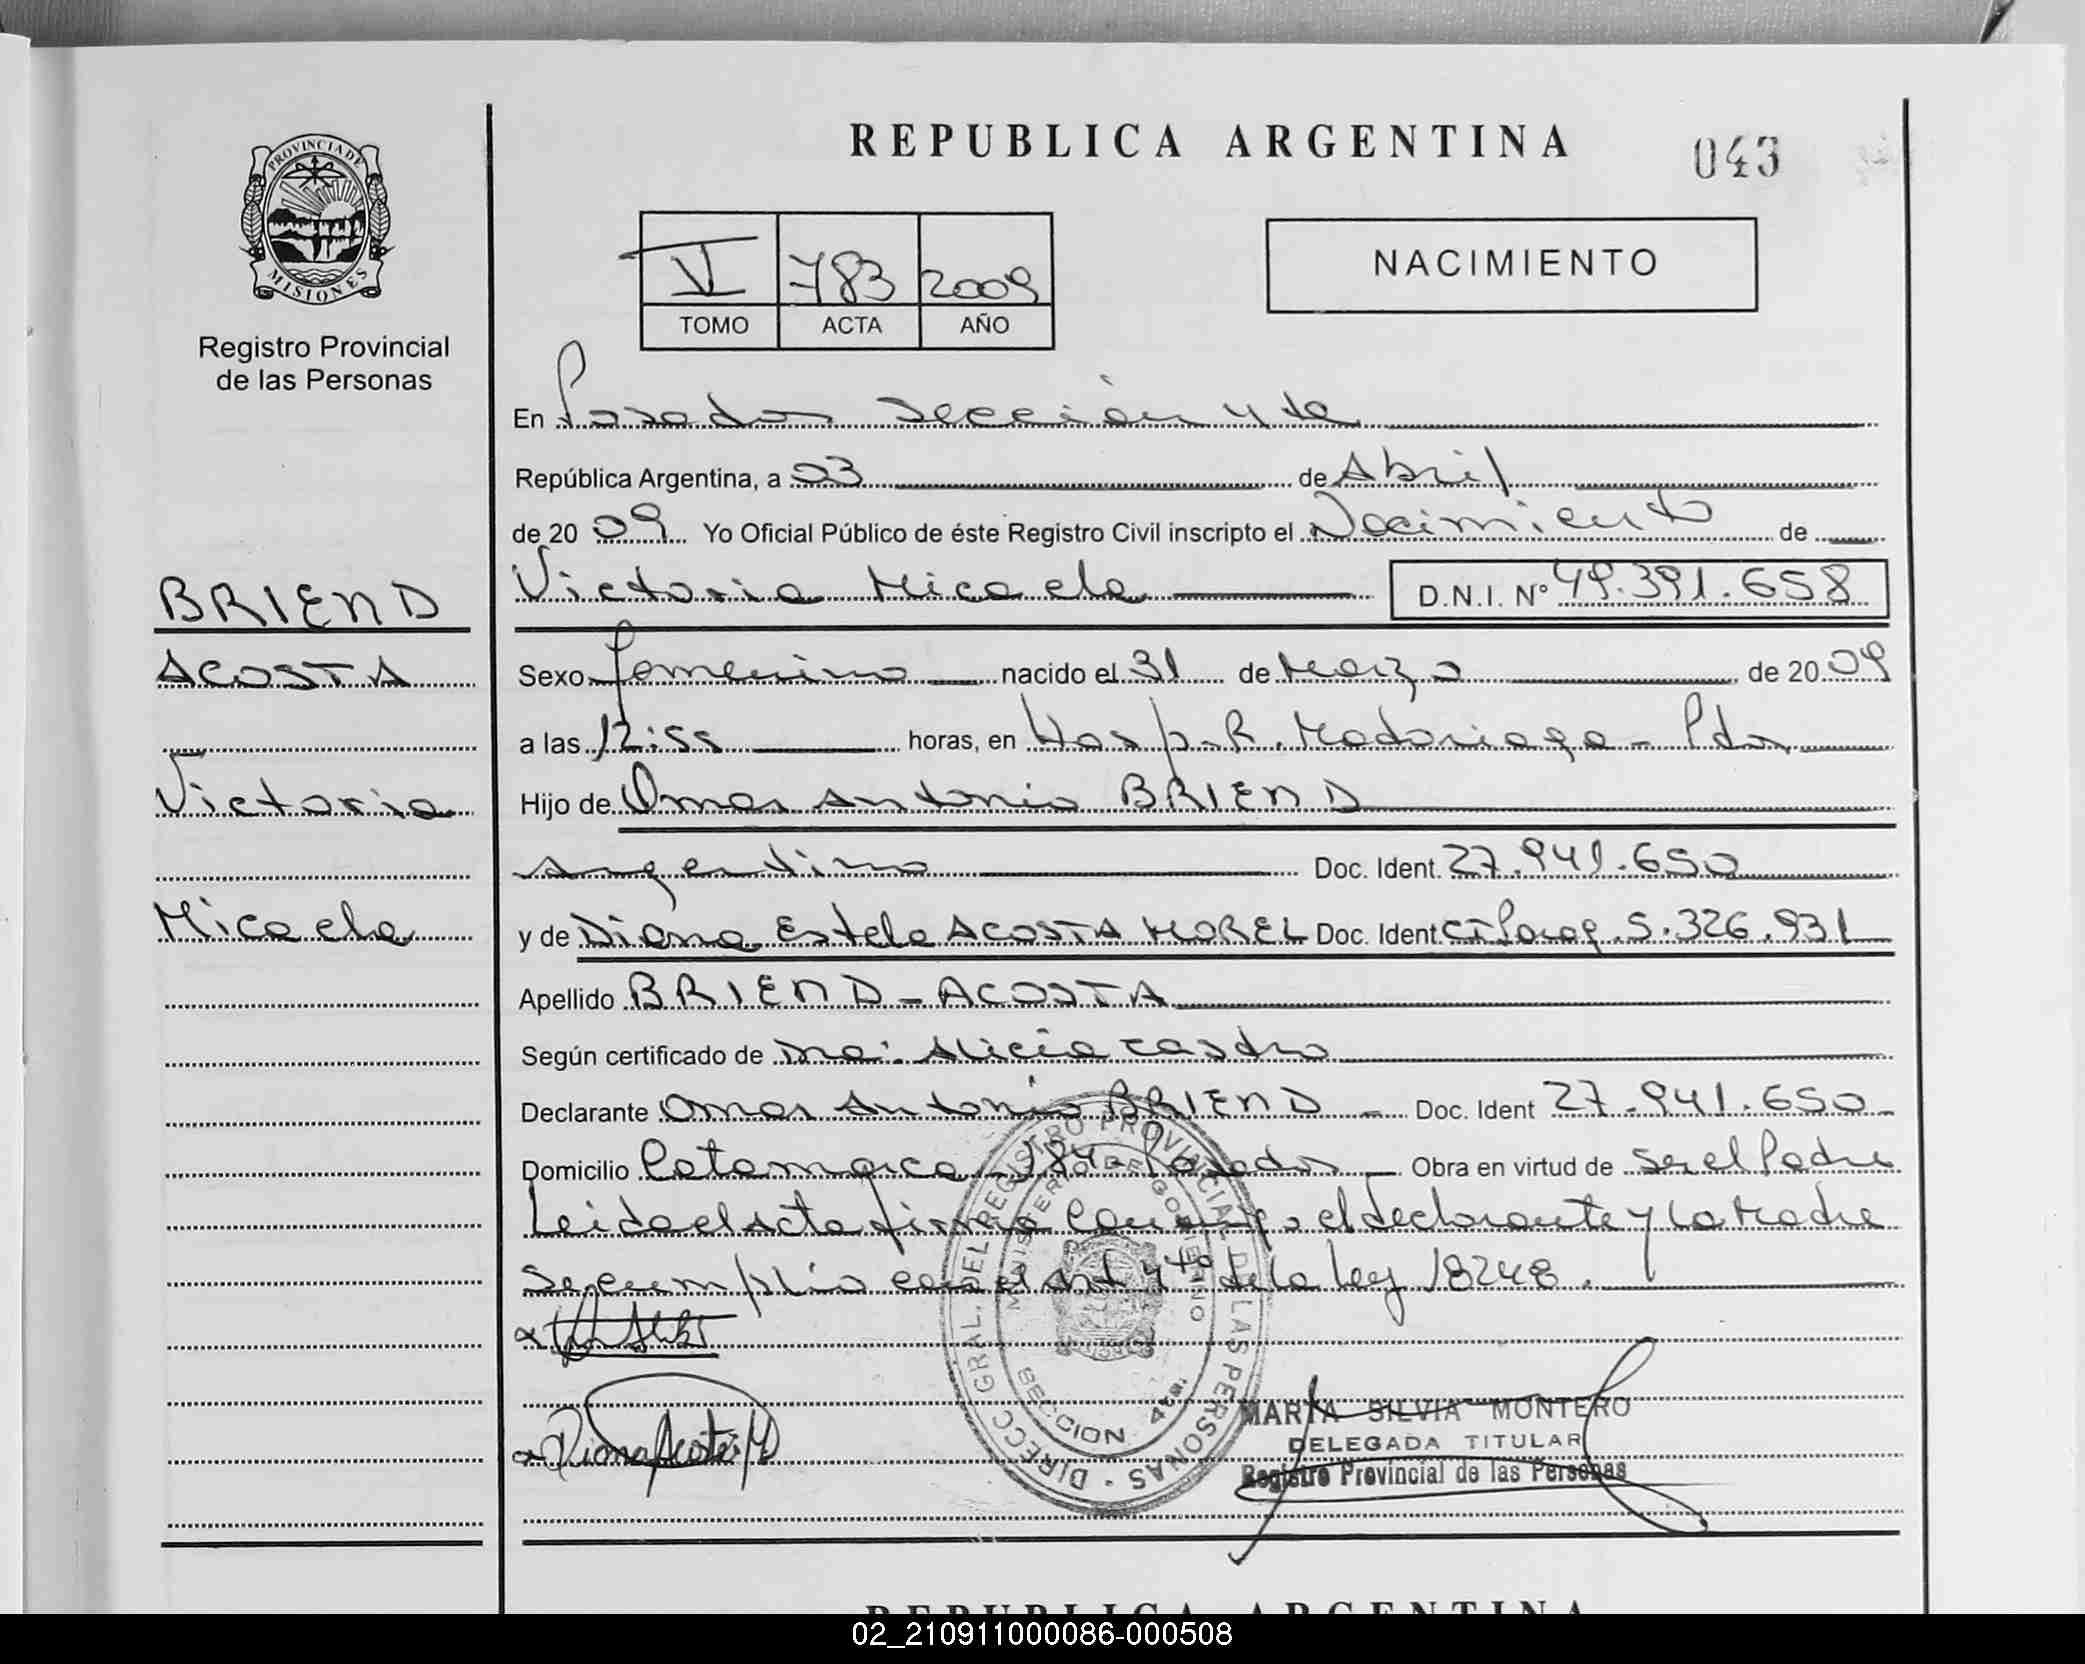 REPUBLICA ARGENTINA
043
PROVINCIA DE
MISIONES
Registro Provincial
de las Personas
VI 783 2009
TOMO ACTA AÑO
NACIMIENTO
En Posadas sección 4ta
República Argentina, a 03 de Abril
de 2009 Yo Oficial Público de éste Registro Civil inscripto el Nacimiento de
BRIEND
Victoria Micaela D.N.I. Nº 49.391.658
ACOSTA
Sexo femenino nacido el 31 de Marzo de 2009
a las 12:55 horas, en Hosp. R. Madariaga - Pdas
Victoria
Hijo de Omar Antonio BRIEND
argentino Doc. Ident. 27.941.650
Micaela
y de Diana Estela ACOSTA MOREL Doc. Ident CI Parag. 5.326.931
Apellido BRIEND - ACOSTA
Según certificado de Dra: Alicia Castro
Declarante Omar Antonio BRIEND - Doc. Ident 27.941.650
Domicilio Catamarca 184 - Posadas Obra en virtud de ser el Padre
Leida el acta firma conmigo el declarante y la Madre
se cumplio con el Art 4to de la ley 18248.
DIRECC GRAL. DEL REGISTRO PROVINCIAL DE LAS PERSONAS
MINISTERIO DE GOBIERNO
SECCION 4ta.
Diana Acosta M
MARTA SILVIA MONTERO
DELEGADA TITULAR
Registro Provincial de las Personas
REPUBLICA ARGENTINA
02_210911000086-000508